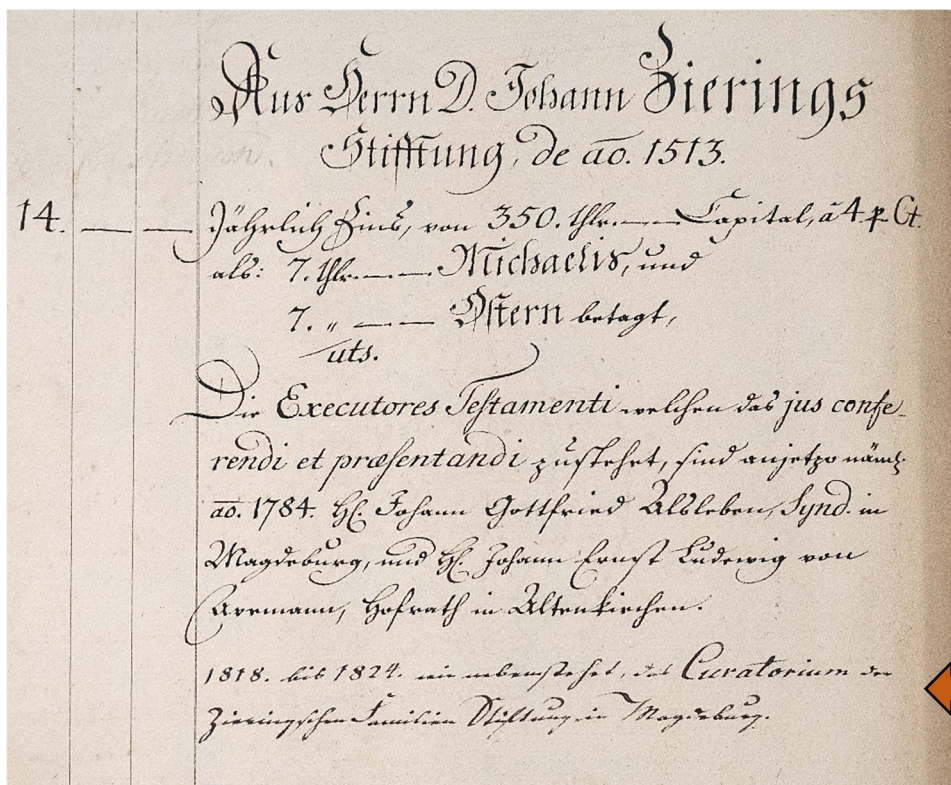 Aus Herrn D. Johann Zierings
Stifftung, de aõ. 1513.
14. — — Jährlich Zins, von 350. thlr. — — Capital, â 4. p. Ct.
als: 7. thlr. — — Michaelis, und
7. „ — — Ostern betagt,
uts.
Die Executores Testamenti welchen das jus confe-
rendi et præsentandi zustehet, sind anjetzo näml:
aõ. 1784. H. Johann Gottfried Alsleben, Synd. in
Magdeburg, und H. Johann Ernst Ludewig von
Avemann, Hofrath in Altenkirchen.
1818. bis 1824. wie nebenstehet, das Curatorium der
Zieringschen Familien Stiftung in Magdeburg.